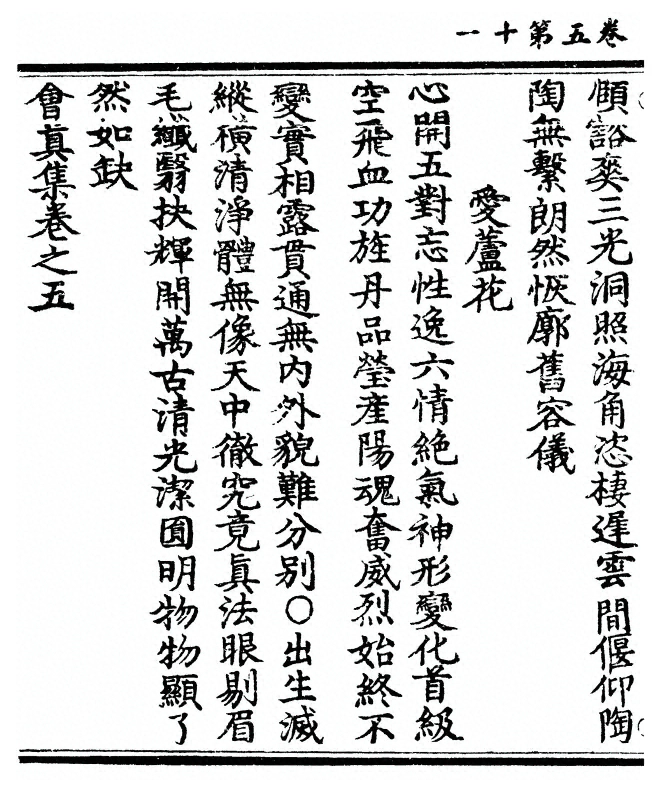 卷五第十一
傾豁奕三光洞照海角恣棲遲雲間偃仰陶
陶無繫朗然恢廓舊容儀
愛蘆花
心開五對忘性逸六情絶氣神形變化首級
空飛血功旌丹品瑩産陽魂奮威烈始終不
變實相露貫通無内外貌難分别〇出生滅
縱横清淨體無像天中徹究竟眞法眼剔眉
毛纖翳抉輝開萬古清光潔圓明物物顯了
然如缺
會眞集卷之五